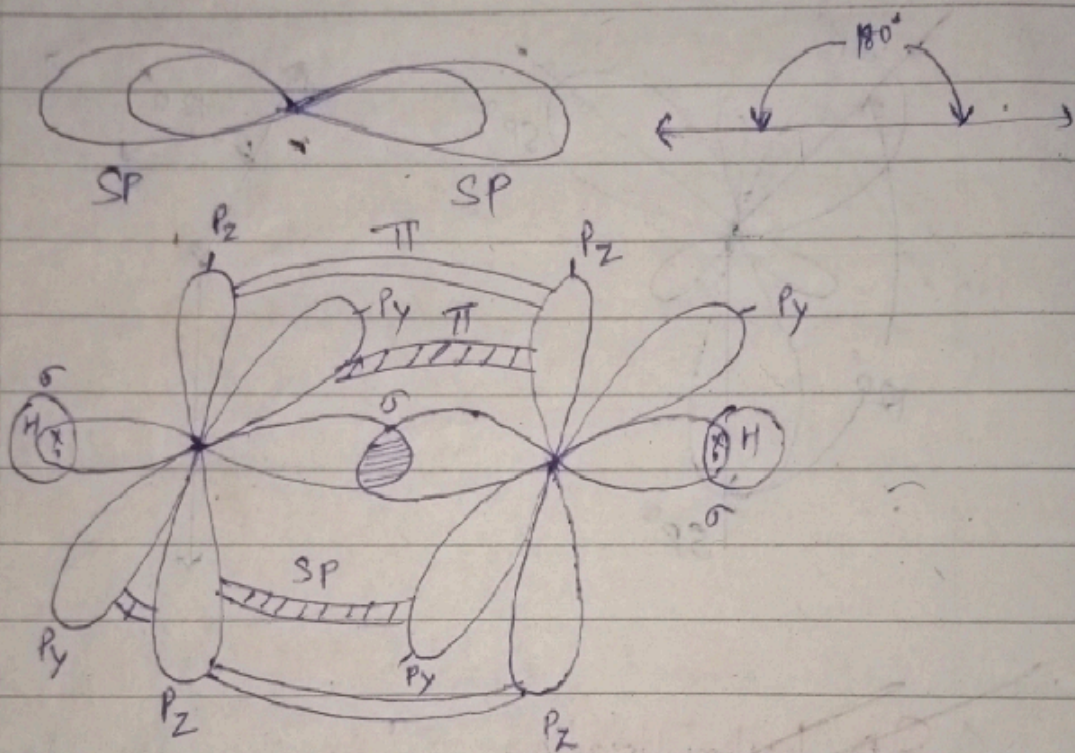 180°
SP SP
Pz π Pz
Py π Py
σ
H σ H
σ
SP
Py Py
Pz Pz